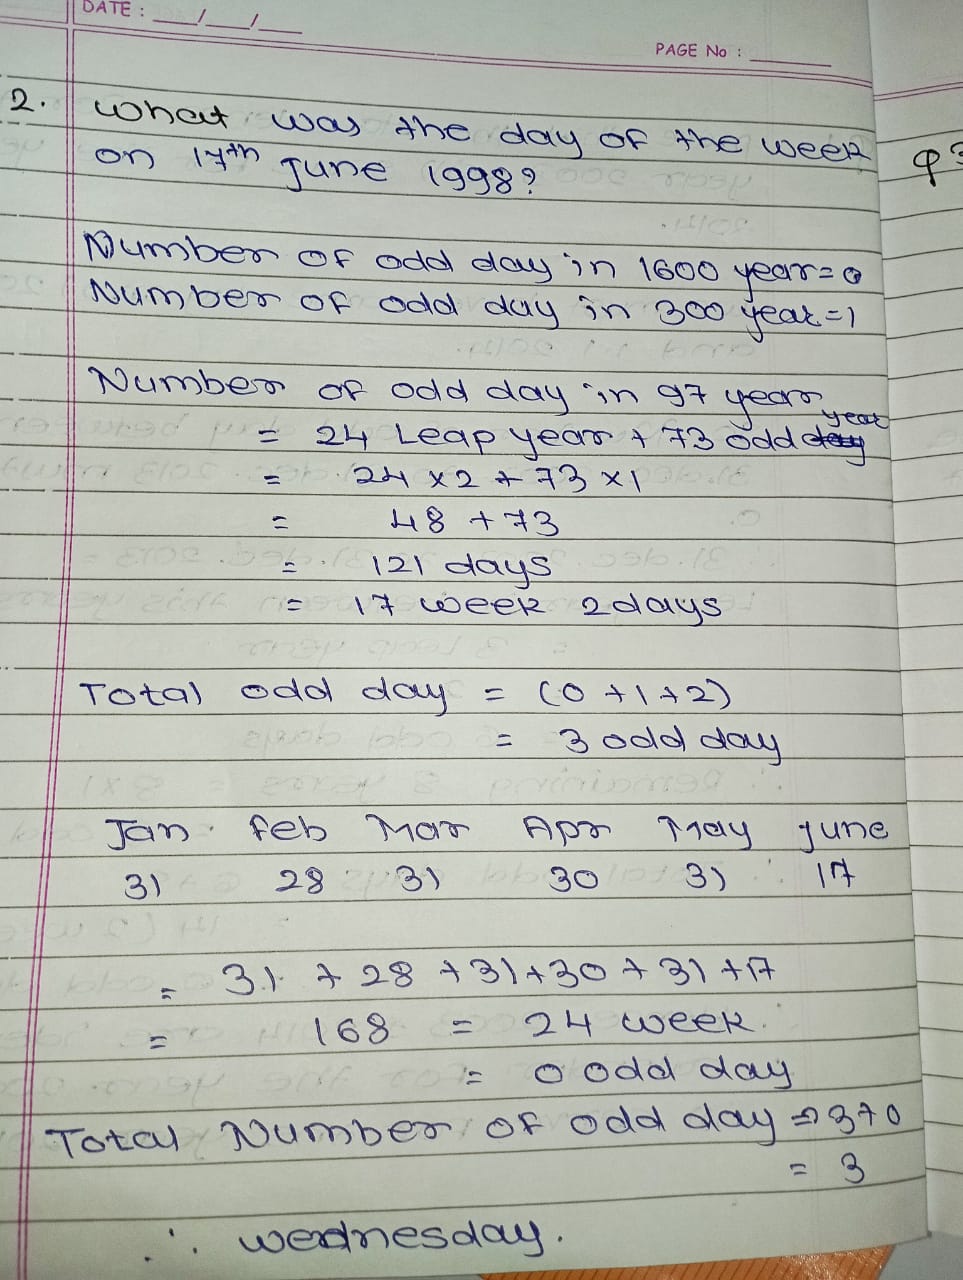 DATE : __/__/__
PAGE No :
2. What was the day of the week
on 17th June 1998?
Number of odd day in 1600 year = 0
Number of odd day in 300 year = 1
Number of odd day in 97 year
= 24 Leap year + 73 odd year
= 24 x 2 + 73 x 1
= 48 + 73
= 121 days
= 17 week 2 days
Total odd day = (0 + 1 + 2)
= 3 odd day
Jan Feb Mar Apr May June
31 28 31 30 31 17
= 31 + 28 + 31 + 30 + 31 + 17
= 168 = 24 week
= 0 odd day
Total Number of odd day => 3+0
= 3
∴ wednesday.